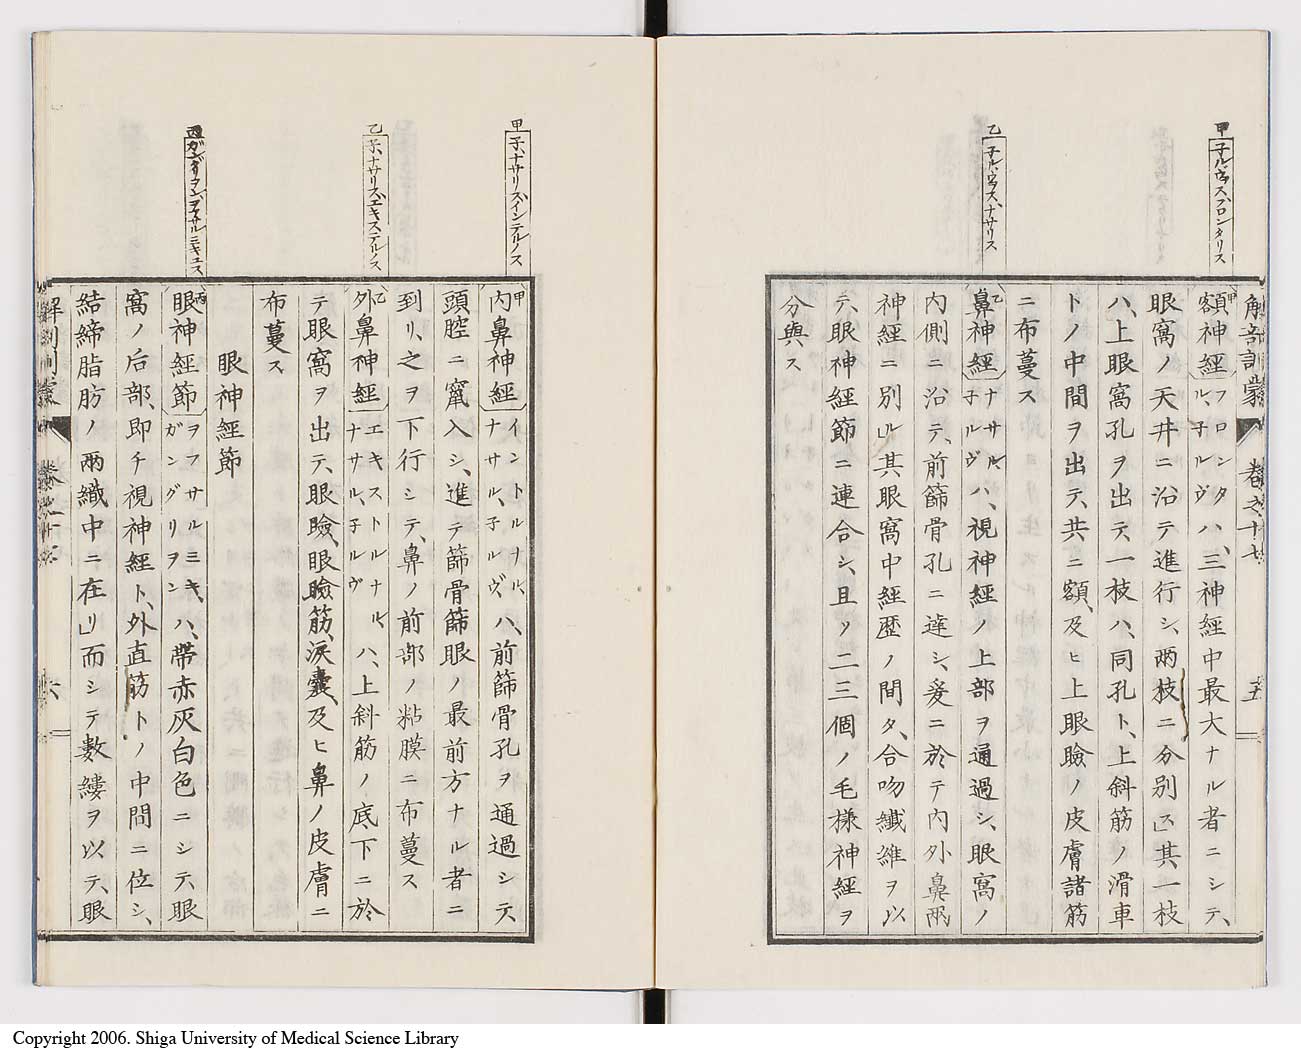 甲 子ルウスフロンタリス
乙 子ルウスナサリス
解剖訓蒙 卷之十七 五
甲額神經 フロンタル、子ルヴ ハ、三神經中最大ナル者ニシテ、
眼窩ノ天井ニ沿テ進行シ、兩枝ニ分別ス」其一枝
ハ、上眼窩孔ヲ出テ、一枝ハ、同孔ト、上斜筋ノ滑車
トノ中間ヲ出テ、共ニ額、及ヒ上眼瞼ノ皮膚諸筋
ニ布蔓ス
乙鼻神經 ナサル、子ルヴ ハ、視神經ノ上部ヲ通過シ、眼窩ノ
内側ニ沿テ、前篩骨孔ニ達シ、爰ニ於テ内外鼻兩
神經ニ別ル」其眼窩中經歴ノ間タ、合吻纖維ヲ以
テ、眼神經節ニ連合シ、且ツ二三個ノ毛樣神經ヲ
分與ス
甲 子、ナサリスインテルノス
乙 子、ナサリスエキステルノス
丙 ガングリヲンヲフサルミキュス
甲内鼻神經 イントルナル、ナサル、子ルヴ ハ、前篩骨孔ヲ通過シテ、
頭腔ニ竄入シ、進テ篩骨篩眼ノ最前方ナル者ニ
到リ、之ヲ下行シテ、鼻ノ前部ノ粘膜ニ布蔓ス
乙外鼻神經 エキストルナル、ナサル、子ルヴ ハ、上斜筋ノ底下ニ於
テ眼窩ヲ出テ、眼瞼、眼瞼筋、淚囊、及ヒ鼻ノ皮膚ニ
布蔓ス
眼神經節
丙眼神經節 ヲフサルミキ、ガングリヲン ハ、帶赤灰白色ニシテ、眼
窩ノ后部、即チ視神經ト、外直筋トノ中間ニ位シ、
結締脂肪ノ兩織中ニ在リ」而シテ數縷ヲ以テ、眼
解剖訓蒙 卷之十七 六
Copyright 2006. Shiga University of Medical Science Library